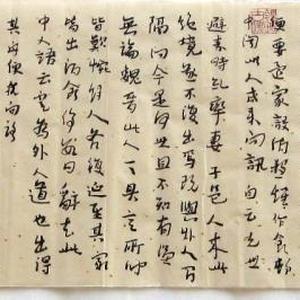 便要還家設酒殺雞作食村
中聞此人咸來問訊自云先世
避秦時亂率妻子邑人來此
絕境遂不復出焉與外人間
隔問今是何世且不知有漢
無論魏晉此人一一具言所聞
皆歎惋餘人各復延至其家
皆出酒食停數日辭去此
中人語云為外人道也出得
其舟便扶向路